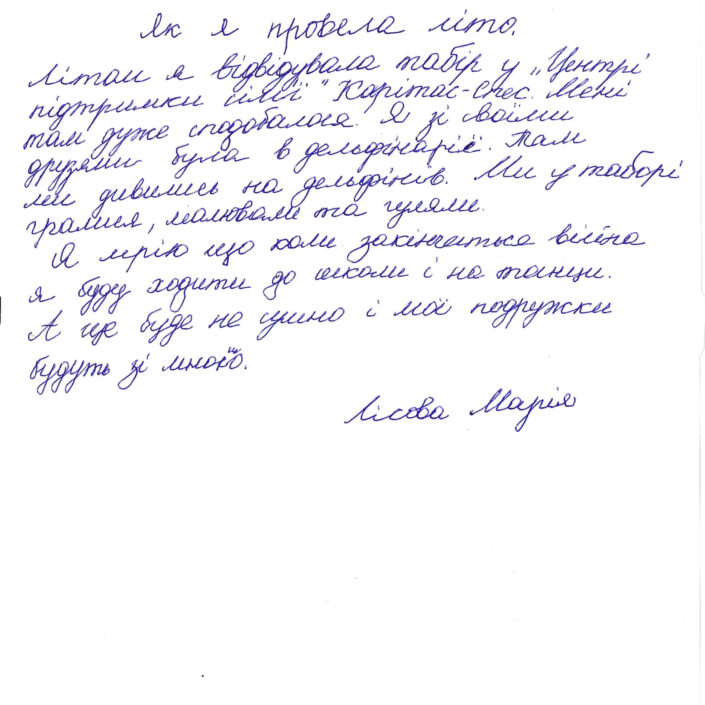 Як я провела літо.
Літом я відвідувала табір у „Центрі
підтримки сім'ї" Карітас-Спес. Мені
там дуже сподобалося. Я зі своїми
друзями була в дельфінаріє. Там
ми дивились на дельфінів. Ми у таборі
грался, малювали та гуляли.
Я мрію що коли закінчиться війна
я буду ходити до школи і на танци.
А ще буде не сумно і мої подружки
будуть зі мною.
Лісова Марія